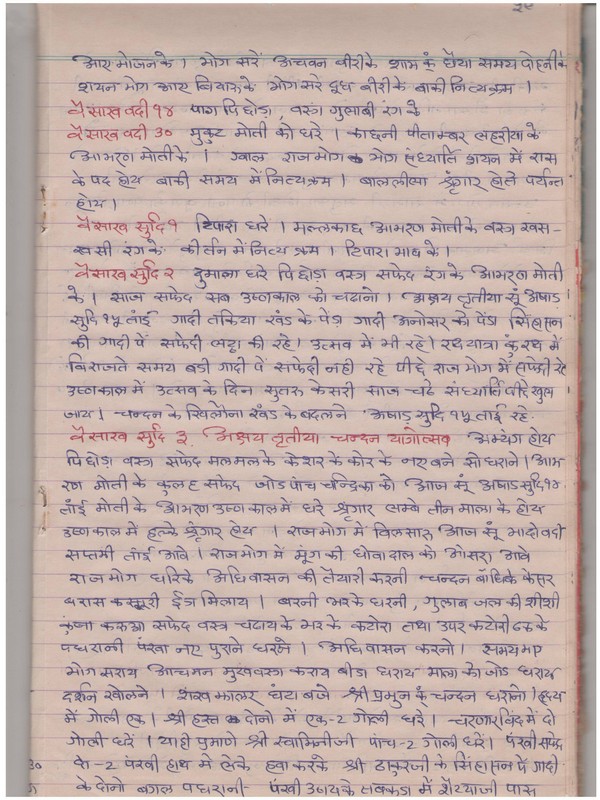 २९
आए भोजन के । भोग सरें अचवन बीरी के शाम कूं छैया समय दोहनी के
शयन भोग आए बियारू के भोग सरे दूध बीरी के बाकी नित्यक्रम ।
वैसाख वदी १४ पाग पिछोड़ा, वस्त्र गुलाबी रंग के
वैसाख वदी ३० मुकुट मोती को धरे । काछनी पीताम्बर लहरीया के
आभरण मोती के । ग्वाल राजभोग भोग संध्यार्ति शयन में रास
के पद होय बाकी समय में नित्यक्रम । बाललीला श्रृंगार होते पर्यन्त
होय ।
वैसाख सुदि १ टिपारा धरे । मल्लकाछ आभरण मोती के वस्त्र खस-
खसी रंग के कीर्तन में नित्य क्रम । टिपारा भाव के ।
वैसाख सुदि २ दुमाला धरे पिछोड़ा वस्त्र सफेद रंग के आभरण मोती
के । साज सफेद सब उष्णकाल को चढानो । अक्षय तृतीया सूं अषाड
सुदि १५ तांई गादी तकिया खंड के पेंडा गादी अनोसर को पेंडा सिंहासन
की गादी पें सफेदी लट्ठा की रहे। उत्सव में भी रहे। रथयात्रा कूं रथ में
बिराजते समय बडी गादी पें सफेदी नहीं रहे पीछे राजभोग में सफेदी रहे
उष्णकाल में उत्सव के दिन सुतरू केसरी साज चढे संध्यार्ति पीछे खुल
जाय। चन्दन के खिलौना खंड के बदलने अषाड सुदि १५ तांई रहे.
वैसाख सुदि ३. अक्षय तृतीया चन्दन यात्रोत्सव अभ्यंग होय
पिछोड़ा वस्त्र सफेद मलमल के केशर के कोर के नए बने सो धराने । आभ
रण मोती के कुलह सफेद जोड पांच चन्द्रिका को आज सूं अषाड सुदि १०
तांई मोती के आभरण उष्णकाल में धरे श्रृंगार लम्बे तीन माला के होय
उष्णकाल में हल्के श्रृंगार होय । राजभोग में विलसारू आज सूं भादों वदी
सप्तमी तांई आवे । राजभोग में मूंग की धोवा दाल को ओसरा आवे
राजभोग धरिके अधिवासन की तैयारी करनी चन्दन बाँधिके केसर
बरास कस्तूरी ईत्र मिलाय । बरनी भरके धरनी, गुलाब जल की शीशी
कुंजा करूआ सफेद वस्त्र चढाय के भर के कटोरा तथा उपर कटोरी ढक के
पधरानी पंखा नए पुराने धरने । अधिवासन करनो । समय भए
भोग सराय आचमन मुखवस्त्र कराय बीडा धराय माला को जोड धराय
दर्शन खोलने । शंख झालर घंटा बजे श्री प्रभुन कूं चन्दन धरानो। हृदय
में गोली एक । श्री हस्त दोनो में एक-२ गोली धरे । चरणारविंद में दो
गोली धरें । याही प्रमाणे श्री स्वामिनीजी पांच-२ गोली धरें। पंखी सफेद
के-२ पंखी हाथ में लेके हवा करके श्री ठाकुरजी के सिंहासन पें गादी
के दोनो बगल पधरानी पंखी उठाय के तबकडी में शैय्याजी पास